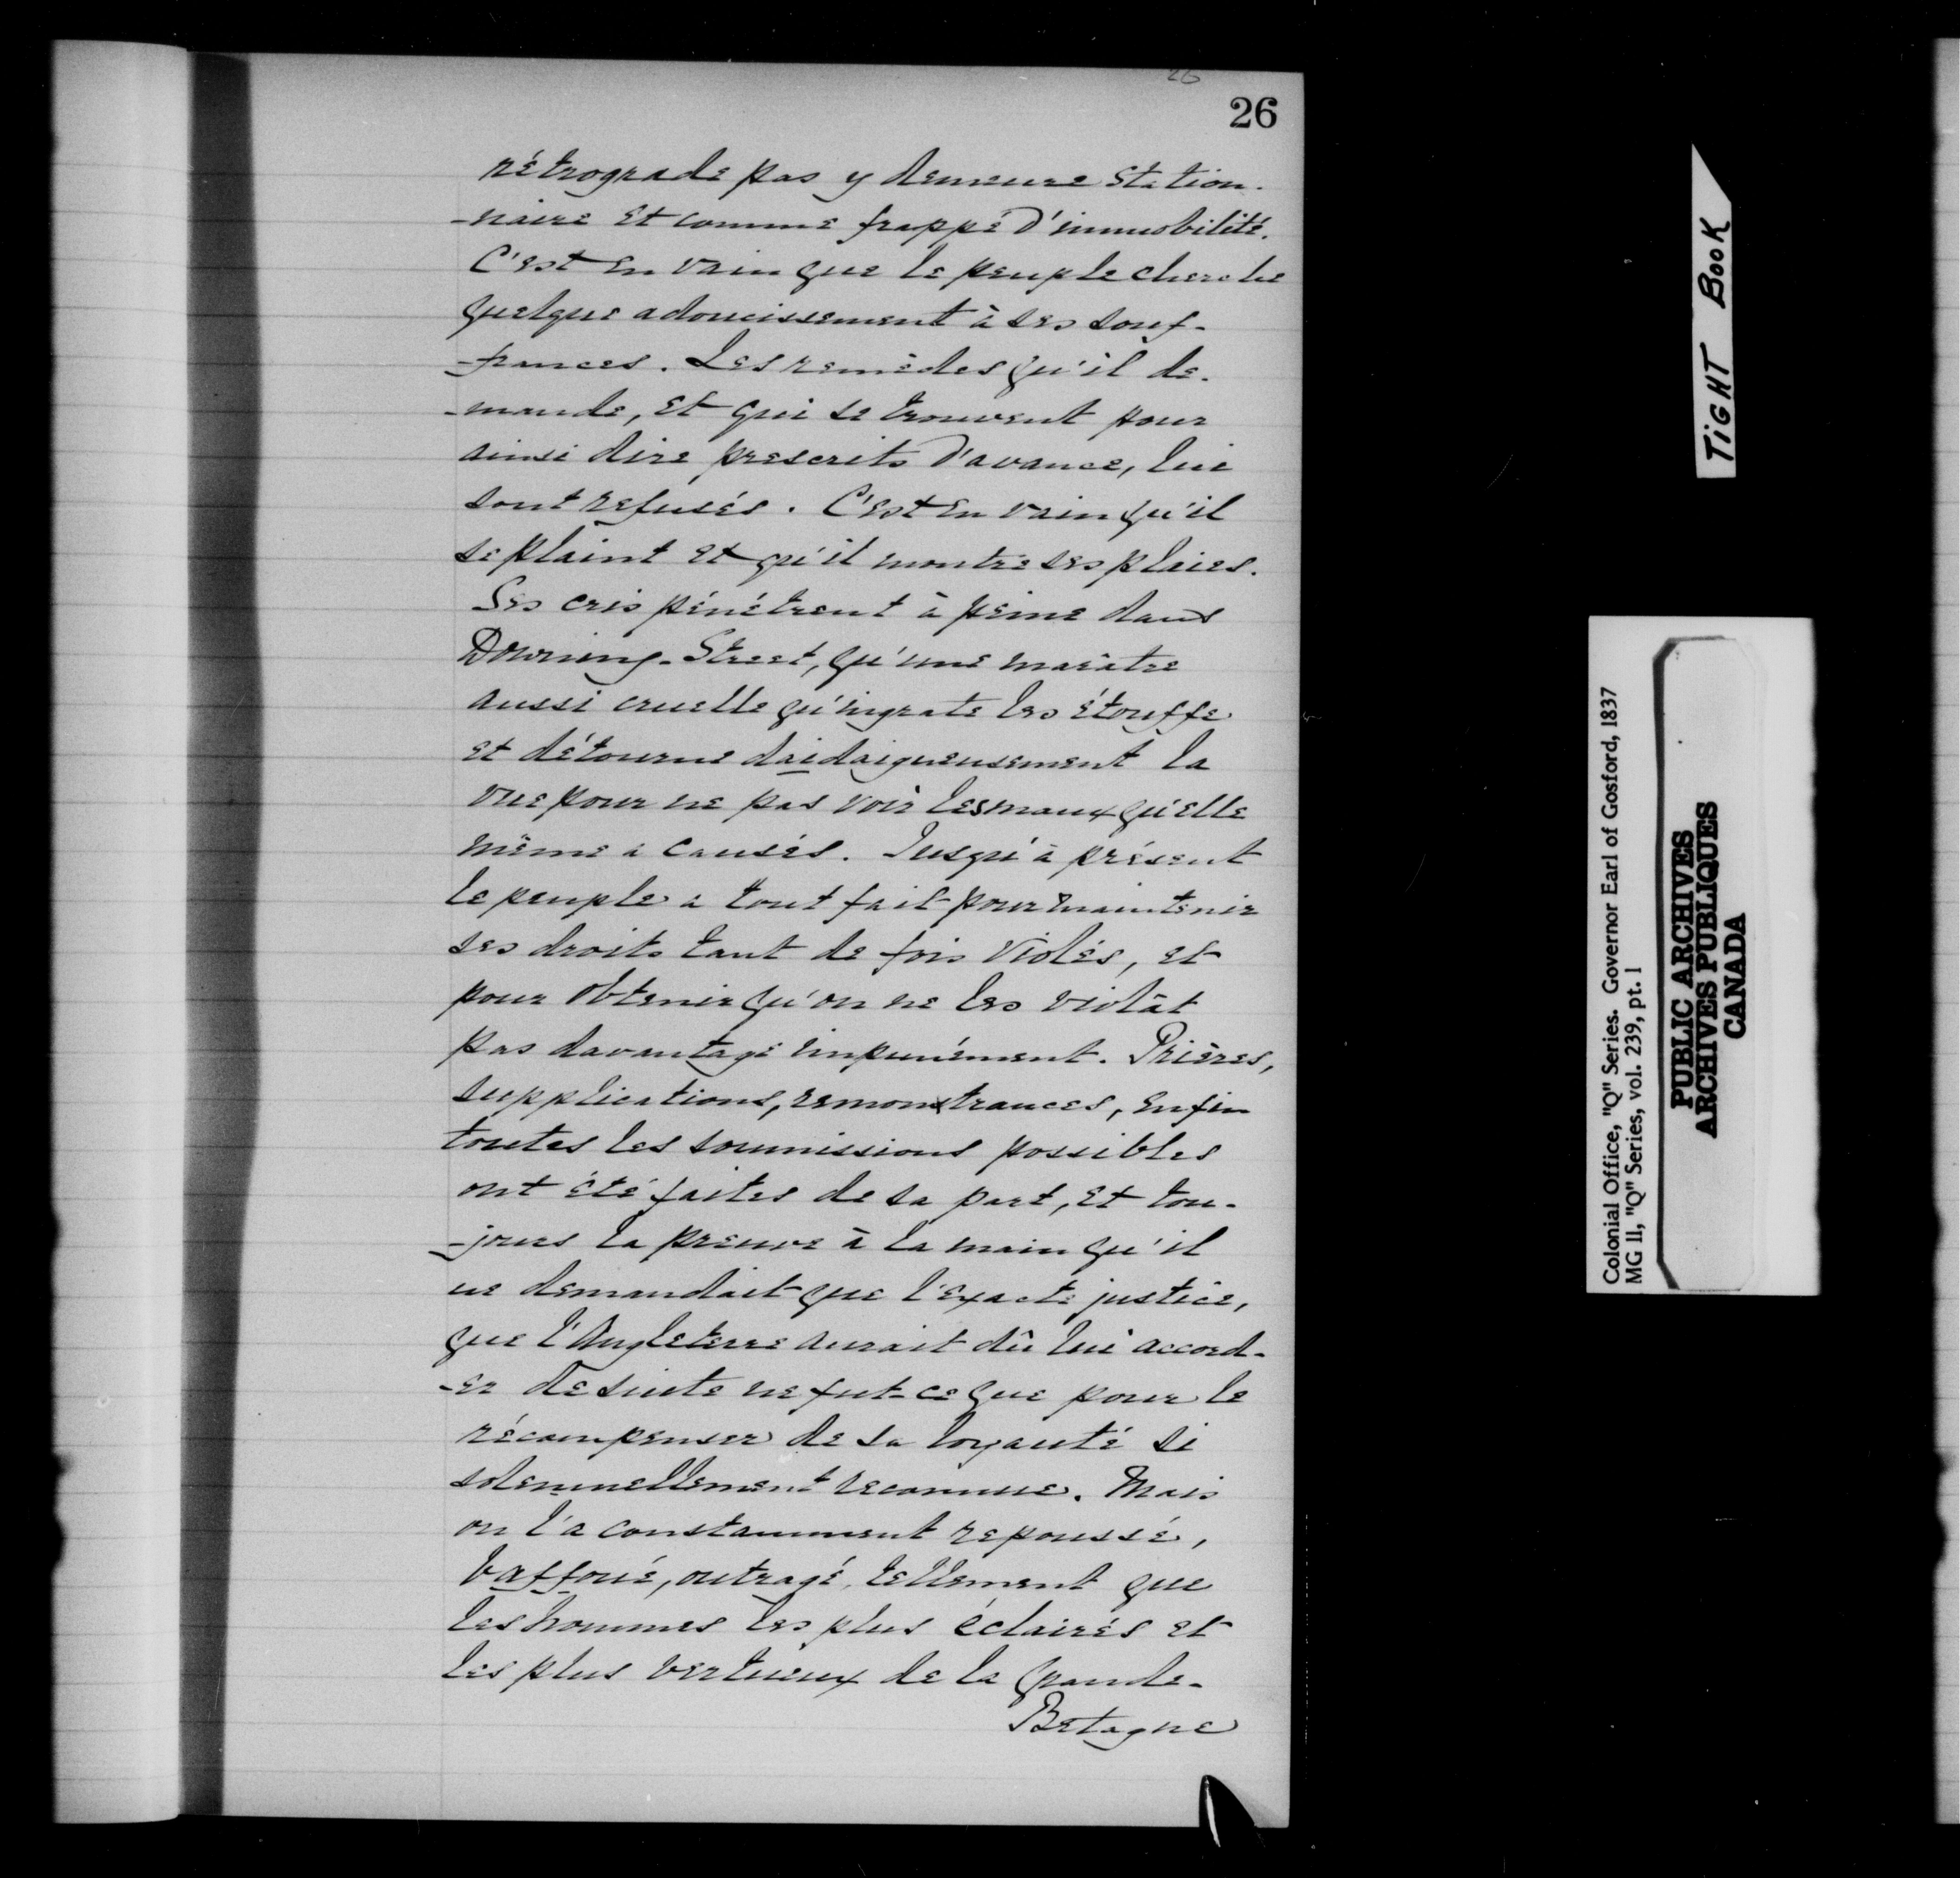 26
26
rétrograde pas y demeure station-
-naire et comme frappé d'immobilité.
C'est en vain que le peuple cherche
quelque adoucissement à ses souf-
-frances. Les remèdes qu'il de-
-mande, et qui se trouvent pour
ainsi dire prescrits d'avance, lui
sont refusés. C'est en vain qu'il
se plaint et qu'il montre ses plaies.
Ses cris pénétrent à peine dans
Downing-Street, qu'une marâtre
aussi cruelle qu'ingrate les étouffe
et détourne daidaigneusement la
vue pour ne pas voir les maux qu'elle
même a causés. Jusqu'à présent
le peuple a tout fait pour maintenir
ses droits tant de fois violés, et
pour obtenir qu'on ne les violât
pas davantage impunément. Prières,
supplications, remonstrances, enfin
toutes les soumissions possibles
ont été faites de sa part, et tou-
-jours la preuve à la main qu'il
ne demandait que l'exacte justice,
que l'Angleterre aurait dû lui accord-
-er de suite ne fut-ce que pour le
récompenser de sa loyauté si
solennellement reconnue. Mais
on l'a constamment repoussé,
baffoué, outragé, tellement que
les hommes les plus éclairés et
les plus vertueux de la Grande-
Bretagne
TIGHT BOOK
Colonial Office, "Q" Series. Governor Earl of Gosford, 1837
MG 11, "Q" Series, vol. 239, pt. 1
PUBLIC ARCHIVES
ARCHIVES PUBLIQUES
CANADA